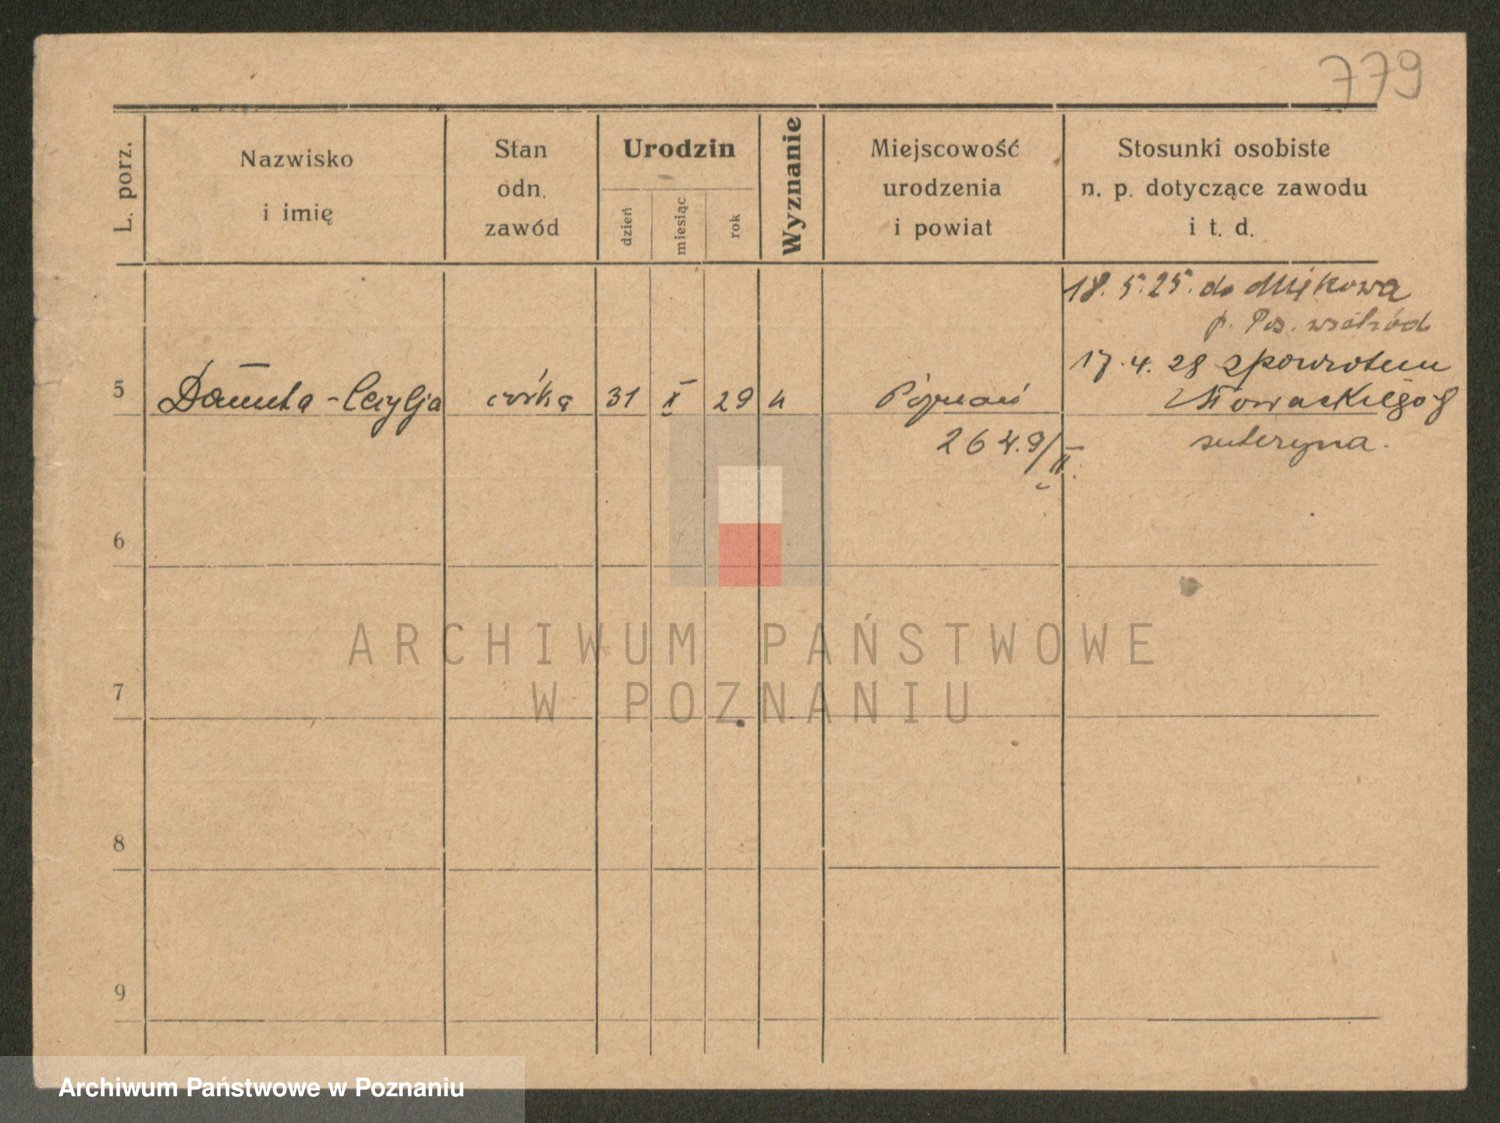 779
L. porz.
Nazwisko
i imię
Stan
odn.
zawód
Urodzin
dzień
miesiąc
rok
Wyznanie
Miejscowość
urodzenia
i powiat
Stosunki osobiste
n. p. dotyczące zawodu
i t. d.
18. 5. 25. do
p. Poz. wschód
17. 4. 28 zpowrotem
5 Danuta - Cecylja córka 31 X 29 Poznań Słowackiego 8
2649/II suteryna.
6
7
8
9
ARCHIWUM PAŃSTWOWE
W POZNANIU
Archiwum Państwowe w Poznaniu